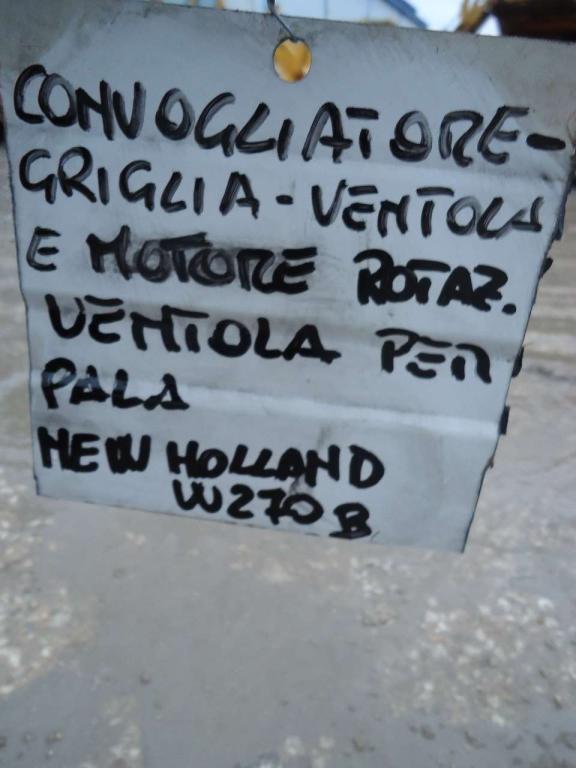 CONVOGLIATORE-
GRIGLIA - VENTOLA
E MOTORE ROTAZ.
VENTOLA PER
PALA
NEW HOLLAND
W270B